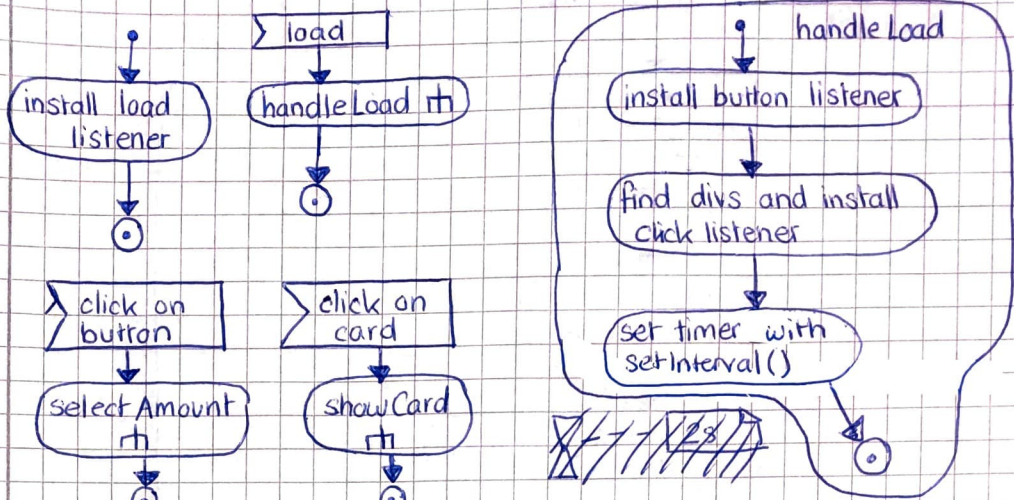 install load
listener
load
handleLoad
click on
button
selectAmount
click on
card
showCard
handleLoad
install button listener
find divs and install
click listener
set timer with
setInterval()